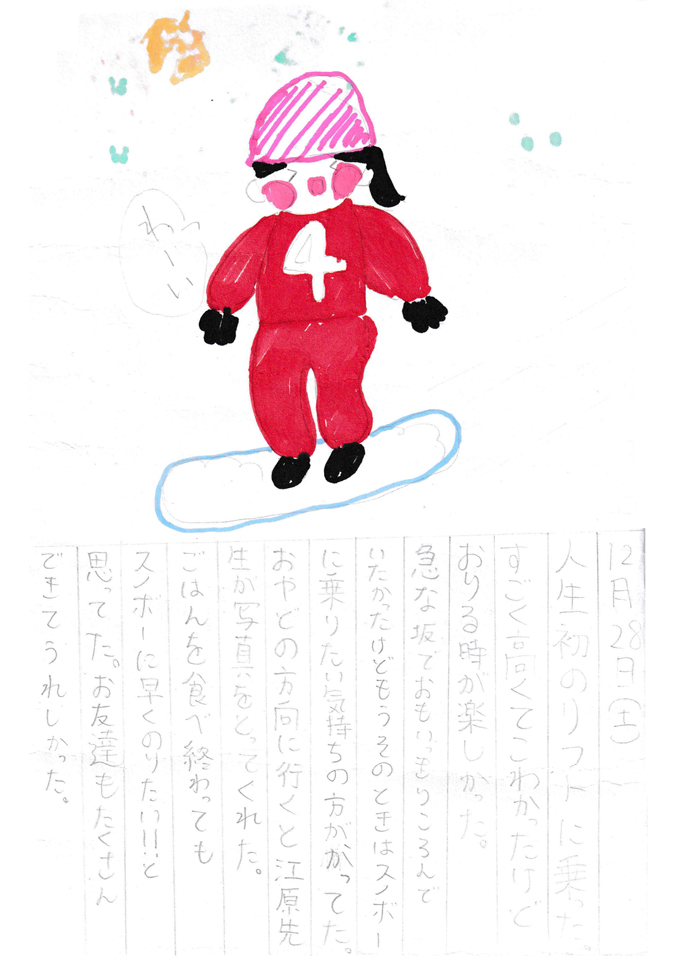 4
わーっい
12月28日(土)
人生初のリフトに乗った。
すごく高くてこわかったけど
おりる時が楽しかった。
急な坂でおもいっきりころんで
いたかったけどもうそのときはスノボー
に乗りたい気持ちの方がかってた。
おやどの方向に行くと江原先
生が写真をとってくれた。
ごはんを食べ終わっても
スノボーに早くのりたい!!と
思ってた。お友達もたくさん
できてうれしかった。